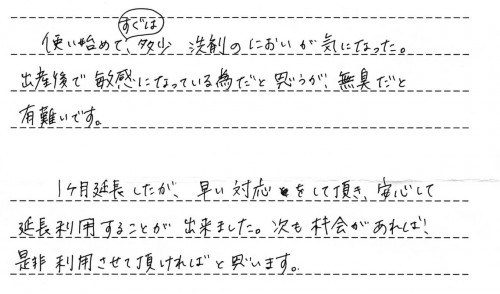 使い始めて、すぐは多少 洗剤のにおいが気になった。
出産後で敏感になっている為だと思うが、無臭だと
有難いです。
1ヶ月延長したが、早い対応をして頂き、安心して
延長利用することが出来ました。次も機会があれば、
是非利用させて頂ければと思います。